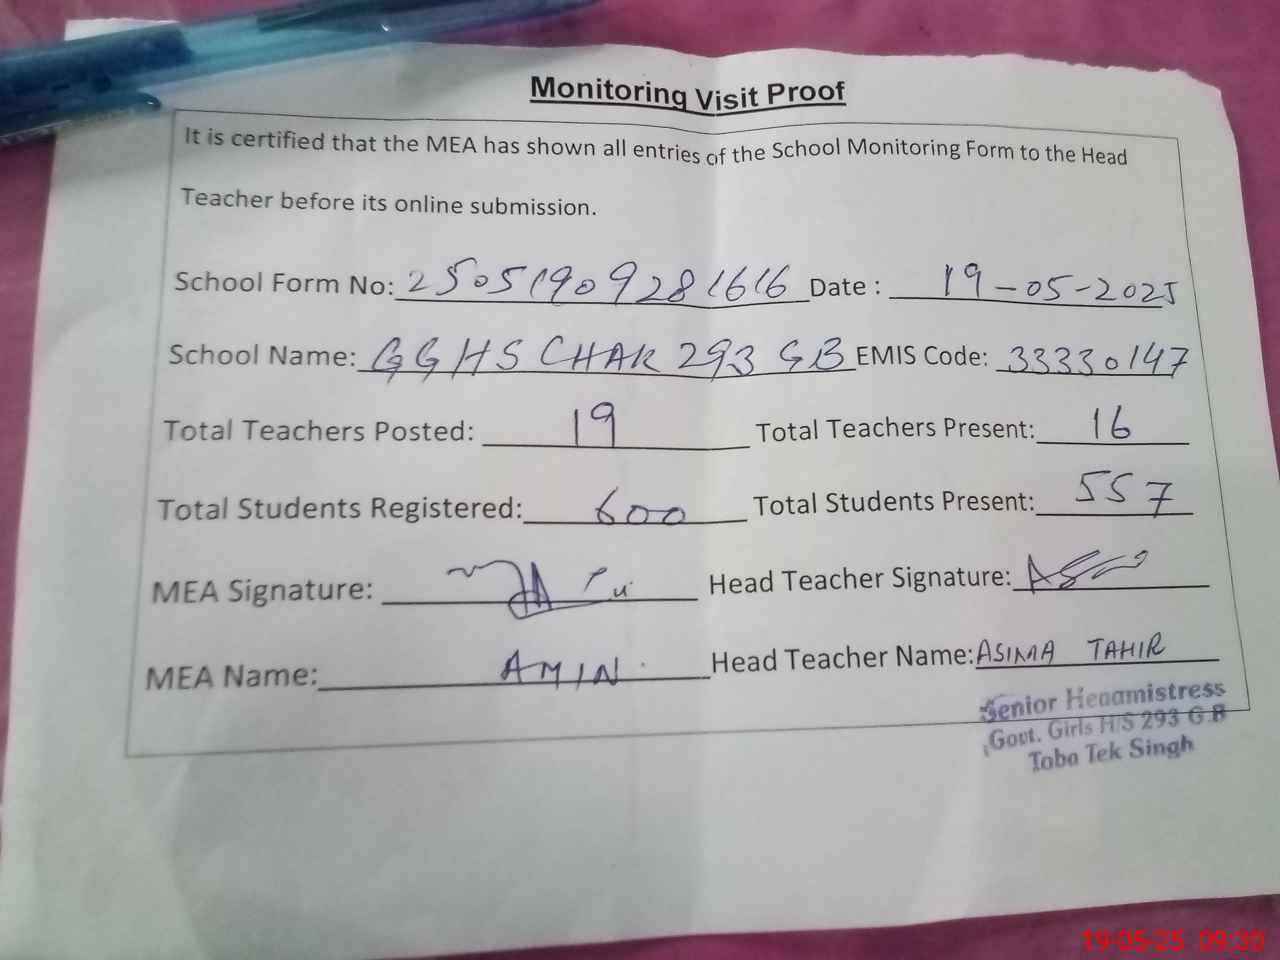 Monitoring Visit Proof
It is certified that the MEA has shown all entries of the School Monitoring Form to the Head
Teacher before its online submission.
School Form No: 2505190928 1616 Date : 19-05-2025
School Name: GGHS CHAK 293 GB EMIS Code: 33330147
Total Teachers Posted: 19 Total Teachers Present: 16
Total Students Registered: 600 Total Students Present: 557
MEA Signature: Head Teacher Signature:
MEA Name: AMIN Head Teacher Name: ASIMA TAHIR
Senior Headmistress
Govt. Girls H/S 293 G.B
Toba Tek Singh
19-05-25 09:30